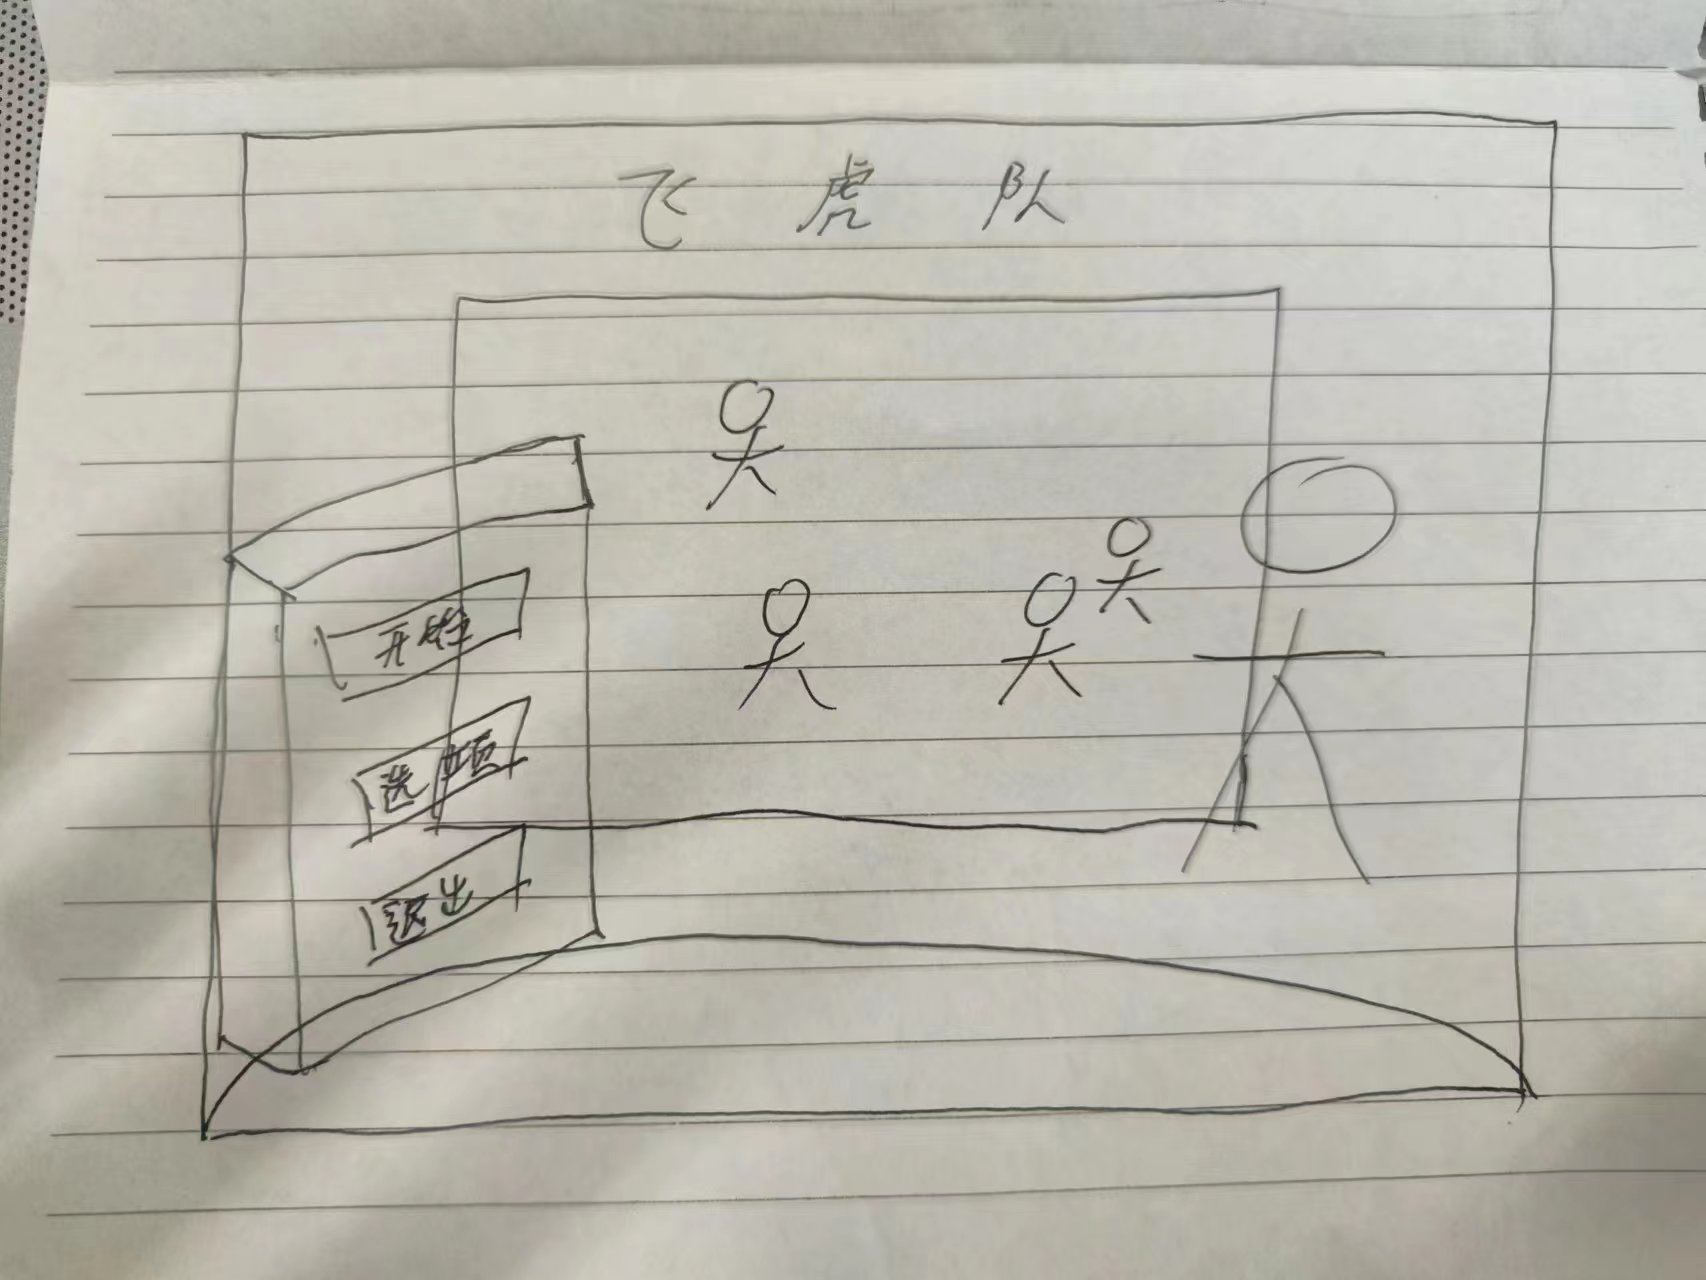 飞虎队
开始
选项
退出